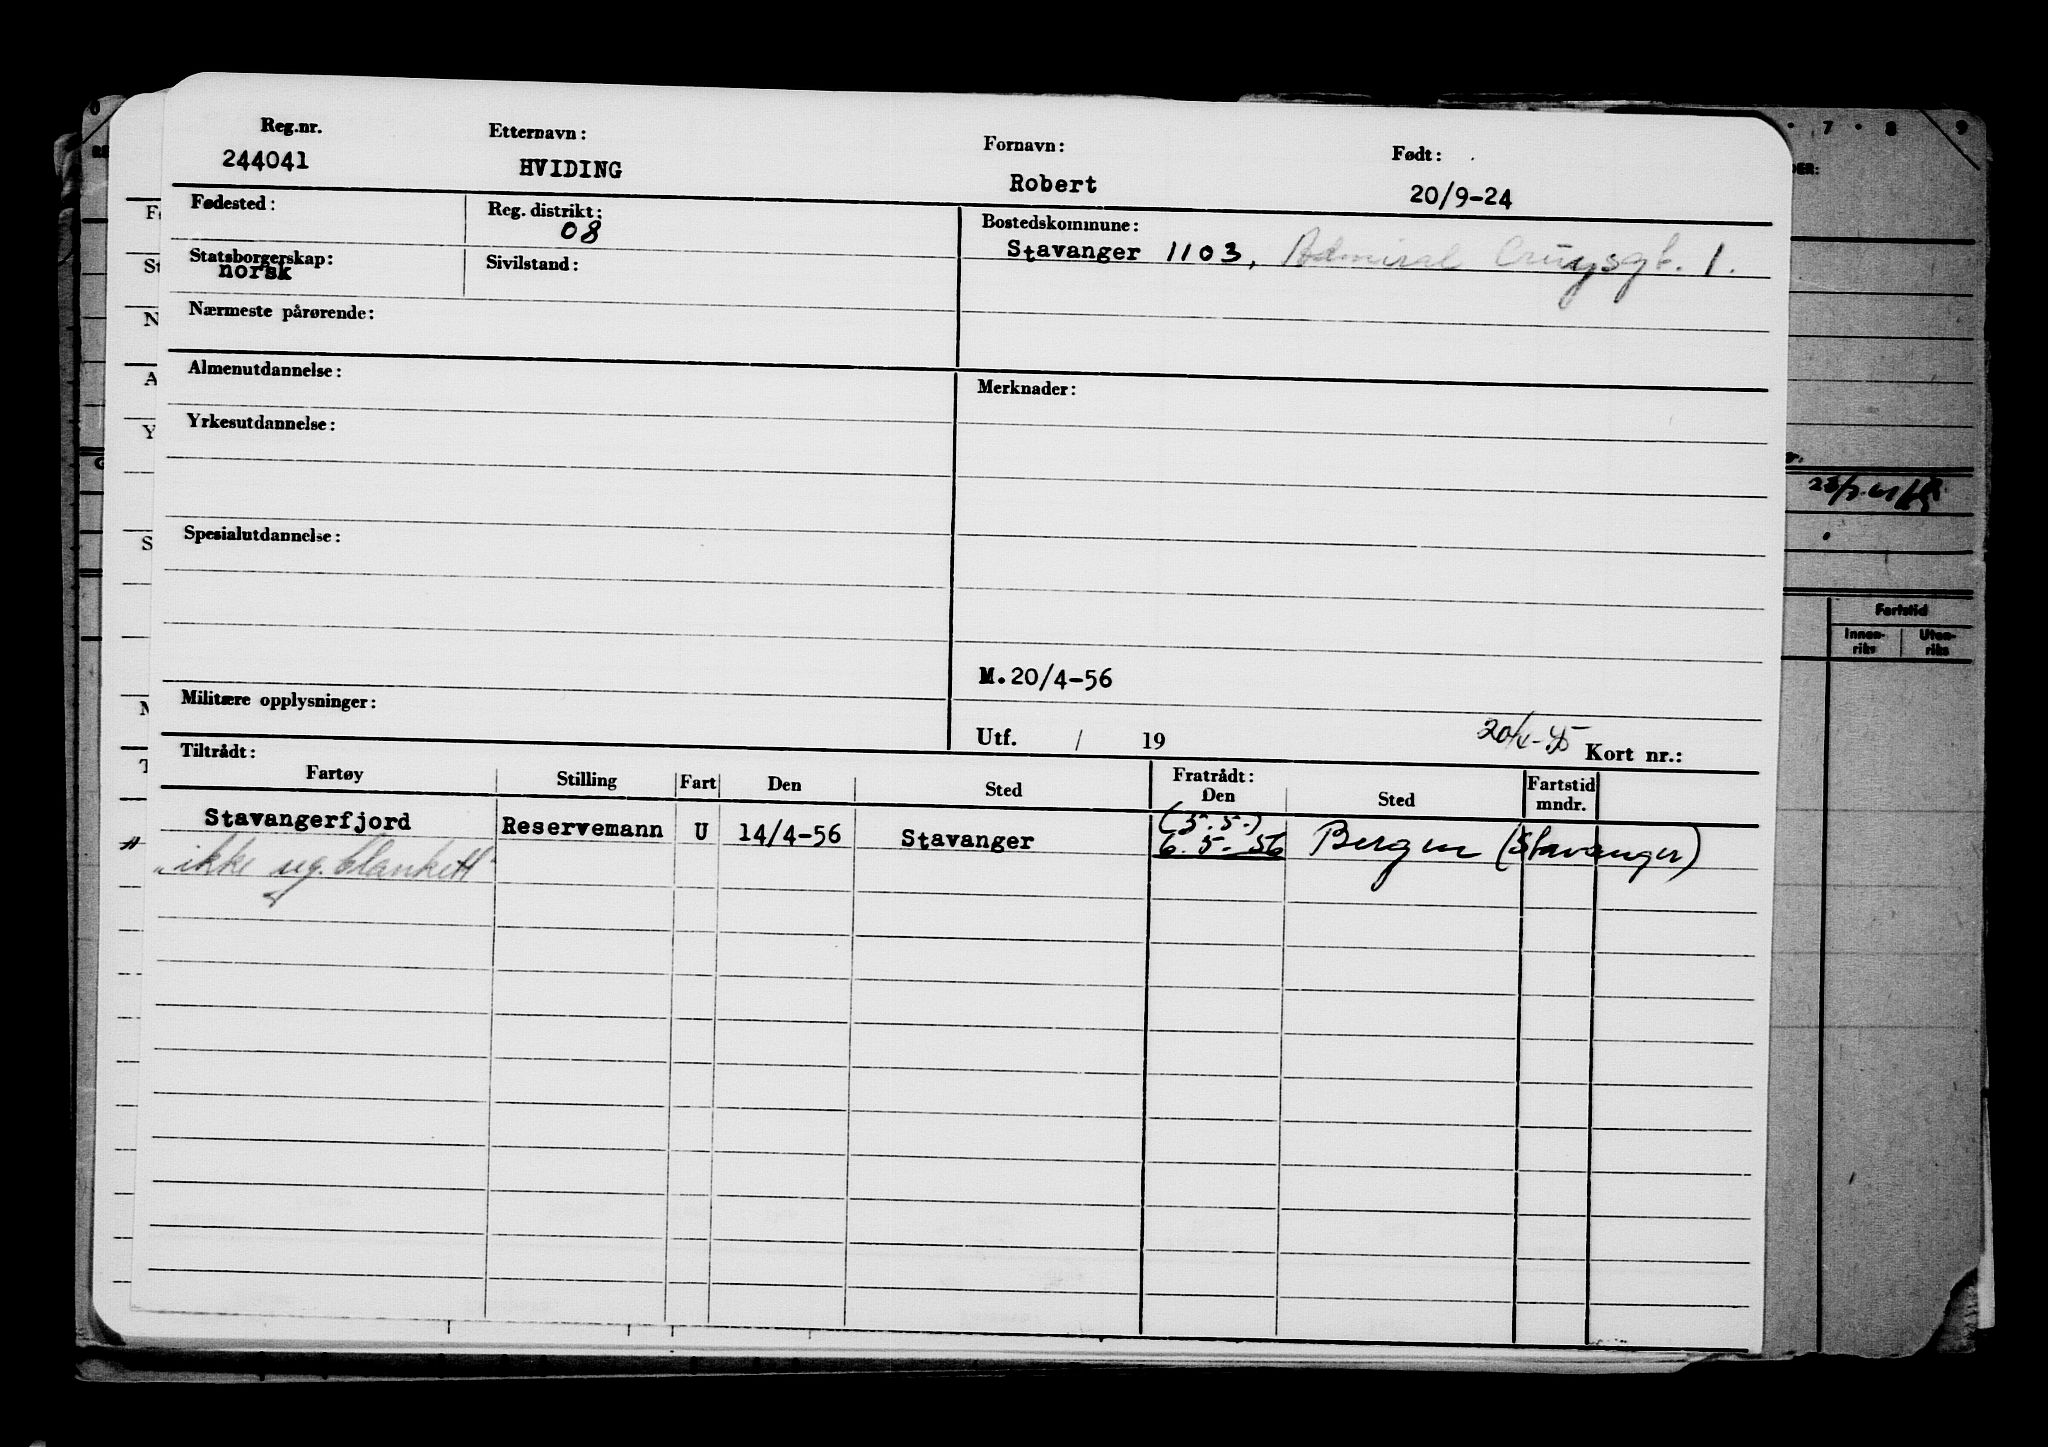 Reg.nr. Etternavn: Fornavn: Født:
244041 HVIDING Robert 20/9-24
Fødested: Reg. distrikt: 08 Bostedskommune:
Stavanger 1103, Admiral Cruysgt. 1.
Statsborgerskap: norsk Sivilstand:
Nærmeste pårørende:
Almenutdannelse: Merknader:
Yrkesutdannelse:
Spesialutdannelse:
M.20/4-56
Militære opplysninger:
Utf. / 19 Kort nr.:
Tiltrådt: Fratrådt:
Fartøy Stilling Fart Den Sted Den Sted Fartstid mndr.
Stavangerfjord Reservemann U 14/4-56 Stavanger (5.5.) 6.5.56 Bergen (Stavanger)
"ikke ug. blankett"
7 8 9
Fartstid
Innen-riks Uten-riks